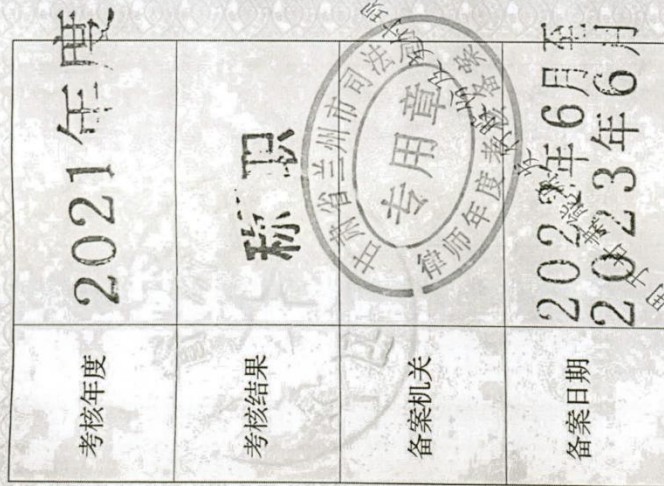 考核年度
2021年度
考核结果
称职
备案机关
甘肃省兰州市司法局
专用章
律师年度考核备案
备案日期
2022年6月至
2023年6月